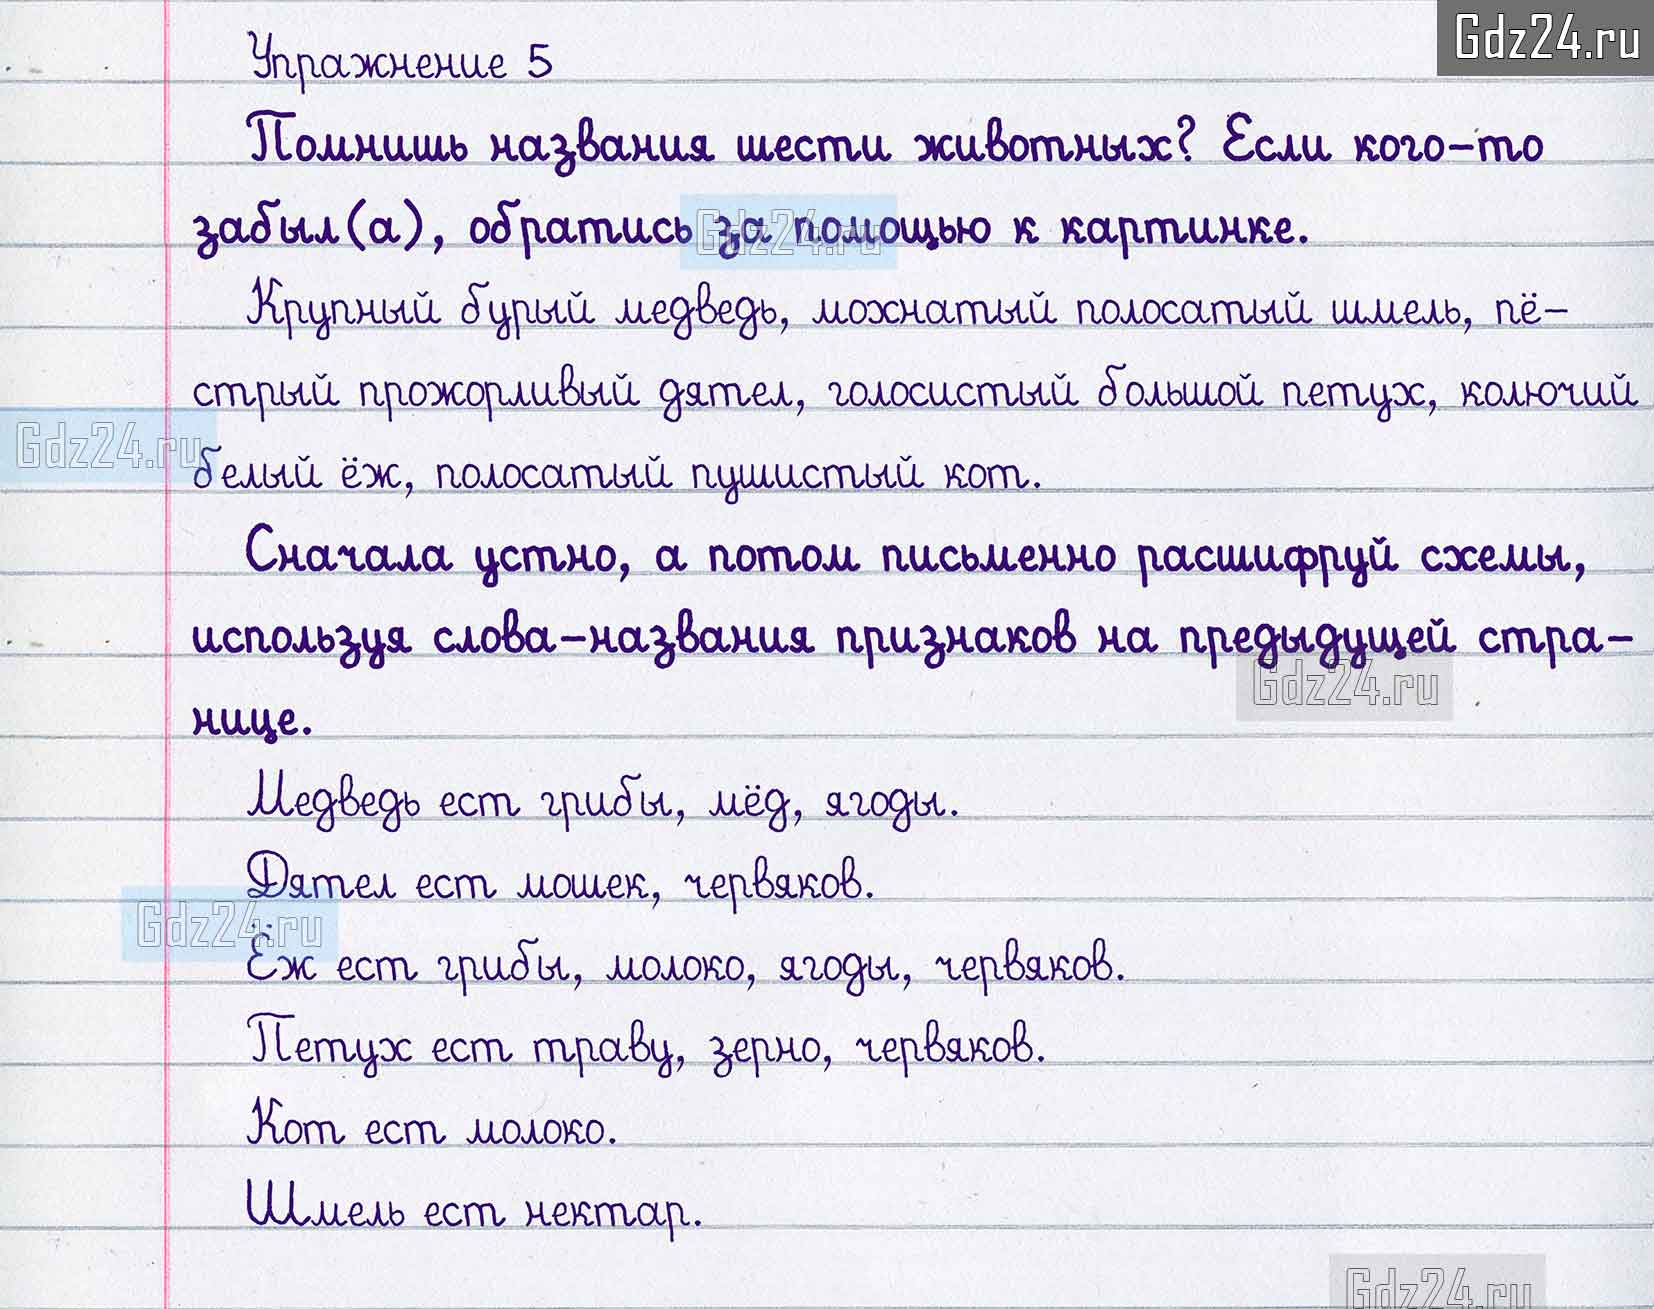 Gdz24.ru
Упражнение 5
Помнишь названия шести животных? Если кого-то
забыл(а), обратись за помощью к картинке.
Gdz24.ru
Крупный бурый медведь, мохнатый полосатый шмель, пё-
стрый прожорливый дятел, голосистый большой петух, колючий
Gdz24.ru
белый ёж, полосатый пушистый кот.
Сначала устно, а потом письменно расшифруй схемы,
используя слова-названия признаков на предыдущей стра-
Gdz24.ru
нице.
Медведь ест грибы, мёд, ягоды.
Дятел ест мошек, червяков.
Gdz24.ru
Ёж ест грибы, молоко, ягоды, червяков.
Петух ест траву, зерно, червяков.
Кот ест молоко.
Шмель ест нектар.
Gdz24.ru